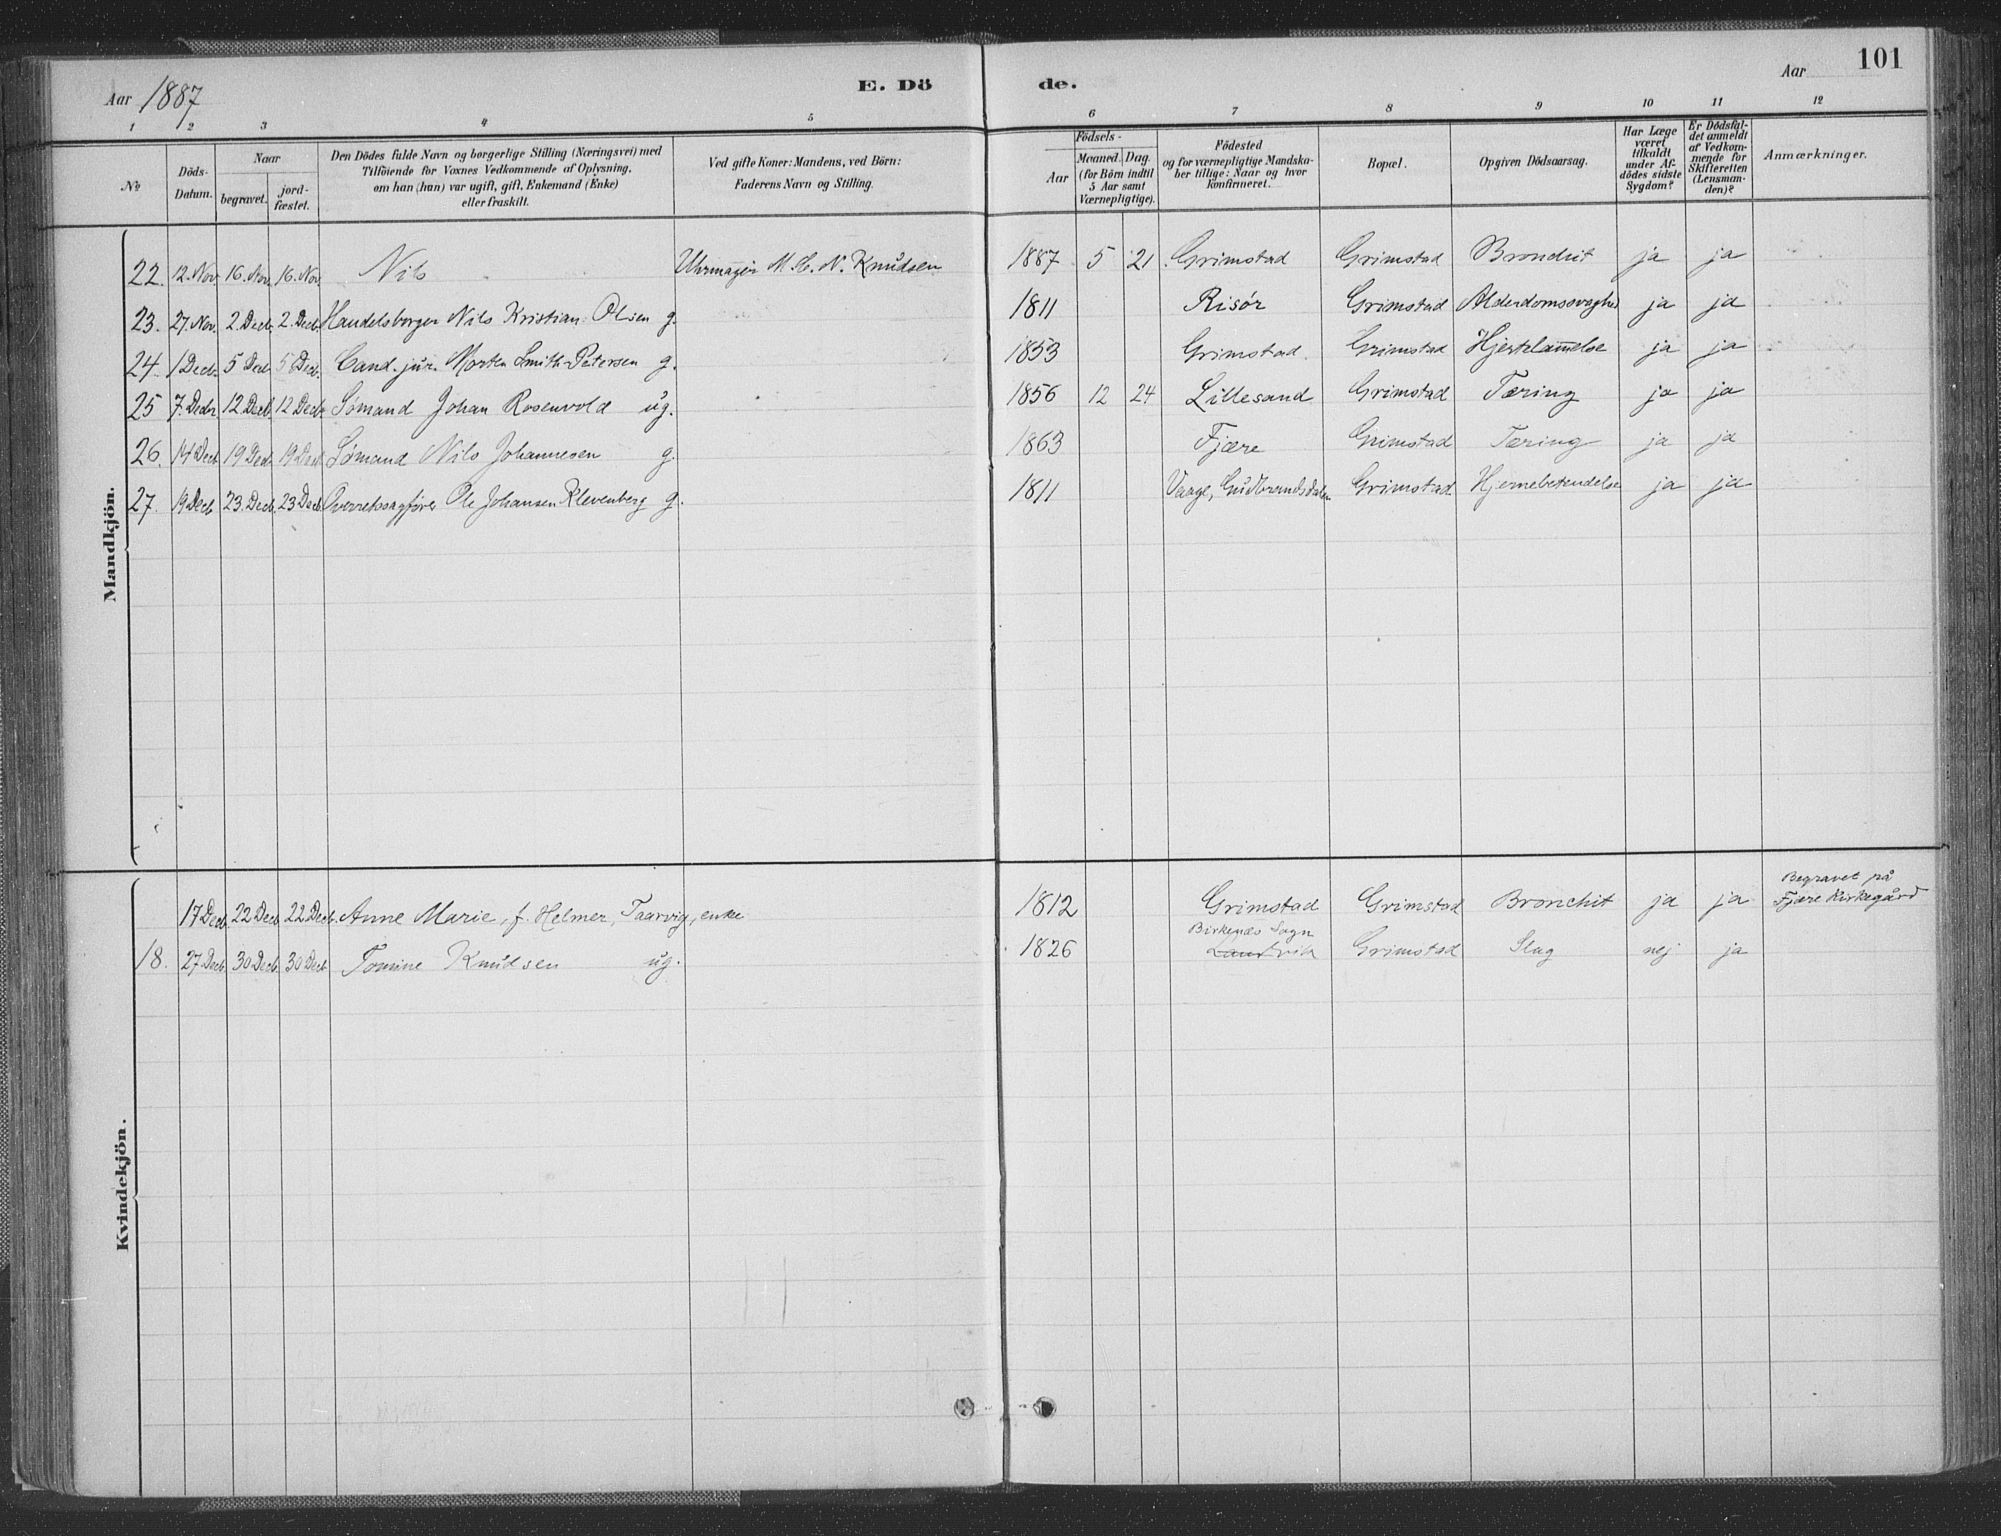 Aar 1887 E. Dö de. Aar 101
1 2 3 4 5 6 7 8 9 10 11 12
№
Döds-Datum.
Naar
begravet.
jord-fæstet.
Den Dödes fulde Navn og borgerlige Stilling (Næringsvei) med
Tilföiende for Voxnes Vedkommende af Oplysning,
om han (hun) var ugift, gift, Enkemand (Enke)
eller fraskilt.
Ved gifte Koner: Mandens, ved Börn:
Faderens Navn og Stilling.
Födsels-
Aar
Maaned. Dag.
(for Börn indtil
5 Aar samt
Værnepligtige).
Födested
og for værnepligtige Mandska-
ber tillige: Naar og hvor
konfirmeret.
Bopæl.
Opgiven Dödsaarsag.
Har Læge
været
tilkaldt
under Af-
dödes sidste
Sygdom?
Er Dödsfal-
det anmeldt
af Vedkom-
mende for
Skifteretten
(Lensman-
den)?
Anmærkninger.
Mandkjön.
22. 12. Nov. 16. Nov. 16. Nov. Nils Uhrmager M. H. N. Knudsen 1887 5 21 Grimstad Grimstad Bronchit ja ja
23. 27. Nov. 2. Decb. 2. Decb. Handelsborger Nils Kristian Olsen g. 1811 Risör Grimstad Alderdomssvaghed ja ja
24. 1 Decbr. 5 Decb. 5 Decb. Cand. jur. Morten Smith-Petersen g. 1853 Grimstad Grimstad Hjertelam̅else ja ja
25 7. Decbr. 12 Decb. 12 Decb. Sömand Johan Rosenvold ug. 1856 12 24 Lillesand Grimstad Tæring ja ja
26. 14 Decb. 19 Decb. 19 Decb. Sömand Nils Johannesen g. 1863 Fjære Grimstad Tæring ja ja
27. 19 Decb. 23. Decb. 23 Decb. Overretssagförer Ole Johansen Klevenberg g. 1811 Vaage, Gudbrandsdalen Grimstad Hjernebetendelse ja ja
Kvindekjön.
17 Decb. 22 Decb. 22 Decb. Anne Marie, f. Helmer, Taarvig, enke 1812 Grimstad Grimstad Bronchit ja ja Begravet på
Fjære Kirkegård
Birkenæs Sogn
18. 27 Decb. 30 Decb. 30 Decb. Tomine Knudsen ug. 1826 Landvik Grimstad Slag nej ja